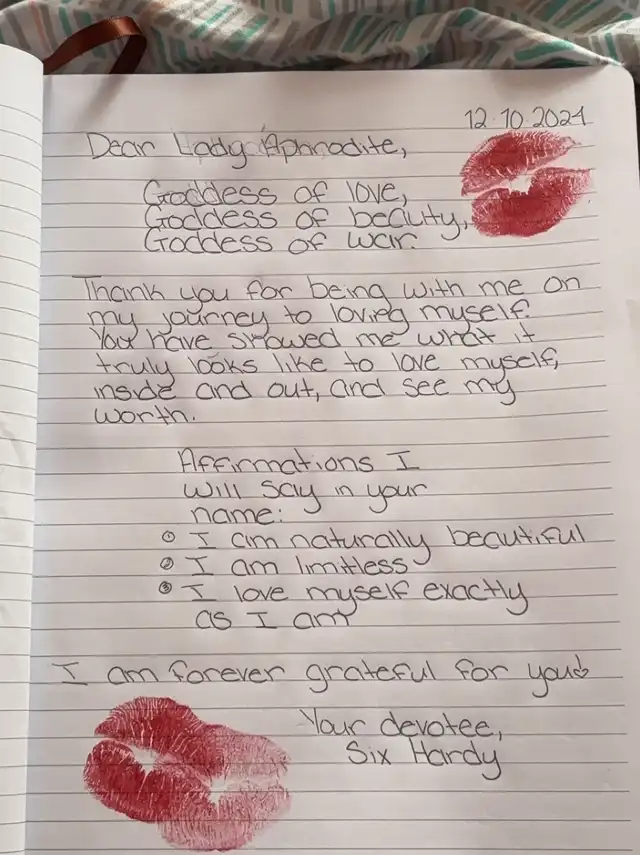 12.10.2024
Dear Lady Aphrodite,
Goddess of love,
Goddess of beauty,
Goddess of war.
Thank you for being with me on
my journey to loving myself.
You have showed me what it
truly looks like to love myself,
inside and out, and see my
worth.
Affirmations I
will say in your
name:
① I am naturally beautiful
② I am limitless
③ I love myself exactly
as I am
I am forever grateful for you♡
Your devotee,
Six Hardy